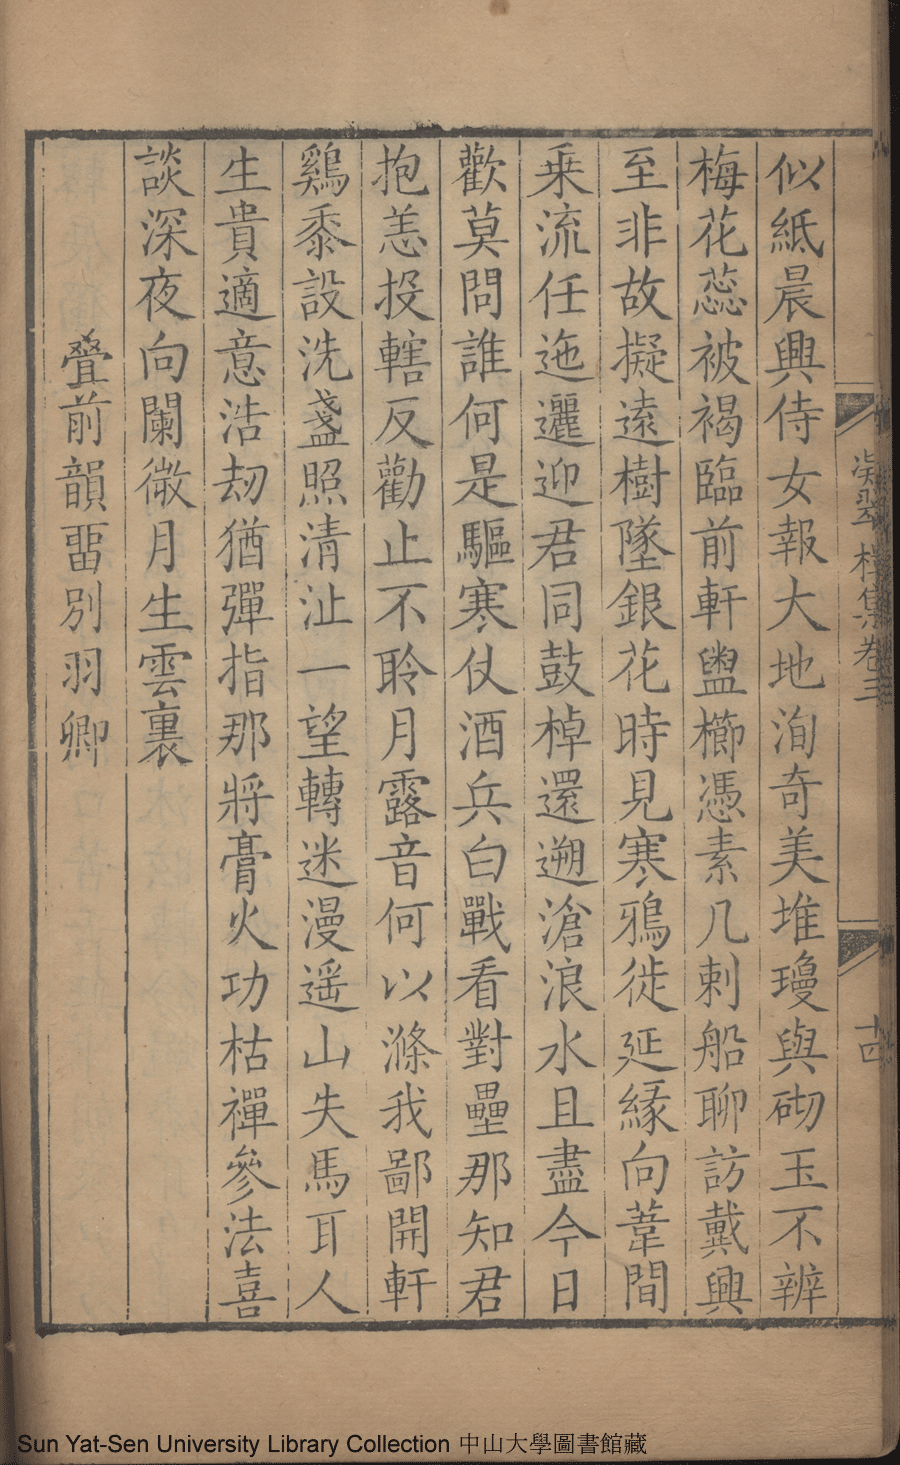 似紙晨興侍女報大地洵奇美堆瓊與砌玉不辨
梅花蕊被褐臨前軒盥櫛憑素几剌船聊訪戴興
至非故擬遠樹墜銀花時見寒鴉徙延緣向葦間
乗流任迤邐迎君同鼓棹還遡滄浪水且盡今日
歡莫問誰何是驅寒仗酒兵白戰看對壘那知君
抱恙投轄反勸止不聆月露音何以滌我鄙開軒
鷄黍設洗盞照清沚一望轉迷漫遥山失馬耳人
生貴適意浩刼猶彈指那將膏火功枯禪參法喜
談深夜向闌微月生雲裏
疊前韻畱別羽卿
凝翠樓集卷三
十四
Sun Yat-Sen University Library Collection 中山大學圖書館藏